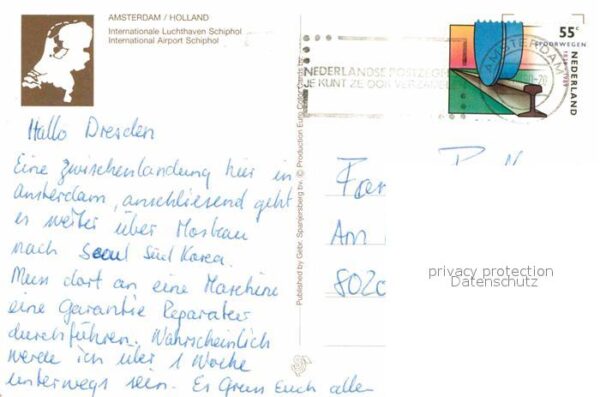 AMSTERDAM / HOLLAND
Internationale Luchthaven Schiphol
International Airport Schiphol
55c
SPOORWEGEN
1839-1989
NEDERLAND
AMSTERDAM
NEDERLANDSE POSTZEGELS
JE KUNT ZE OOK VERZAMELEN
Hallo Dresden
Eine Zwischenlandung hier in
Amsterdam, anschliesend geht
es weiter über Moskau
nach Seoul Süd Korea.
Muss dort an eine Maschine
eine Garantie Reparatur
durchführen. Wahrscheinlich
werde ich über 1 Woche
unterwegs sein. Es Grüss Euch alle
Published by Gebr. Spanjersberg bv. © Production Euro Color Cards bv.
Fa
Am
802
privacy protection
Datenschutz